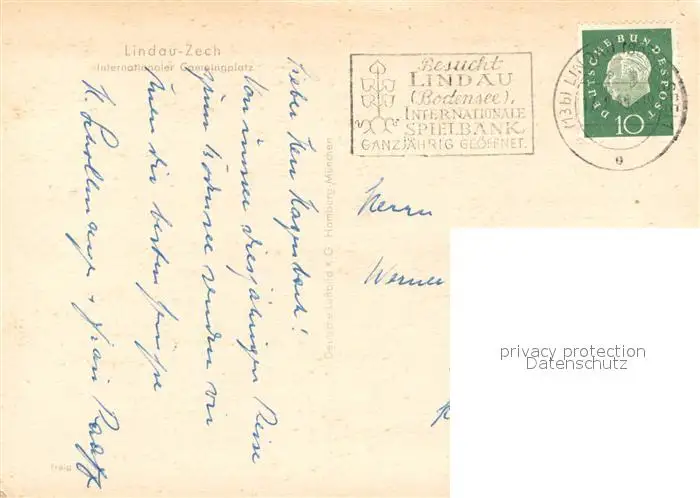 Lindau-Zech
Internationaler Campingplatz
Besucht
LINDAU
(Bodensee),
INTERNATIONALE
SPIELBANK,
GANZJÄHRIG GEÖFFNET.
DEUTSCHE BUNDESPOST
10
(13b) LINDAU
e
Lieber Herr Hagenbach!
Von unserer diesjährigen Reise
zum Bodensee senden wir
Ihnen die besten Grüsse
H. u. Frau
Deutsche Luftbild K.G. Hamburg-München
Herrn
Werner
privacy protection
Datenschutz
Freig